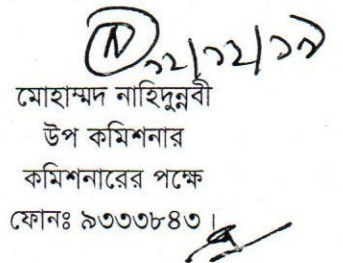 ১২/১২/১৯
মোহাম্মদ নাহিদুন্নবী
উপ কমিশনার
কমিশনারের পক্ষে
ফোনঃ ৯৩৩৩৮৪৩।